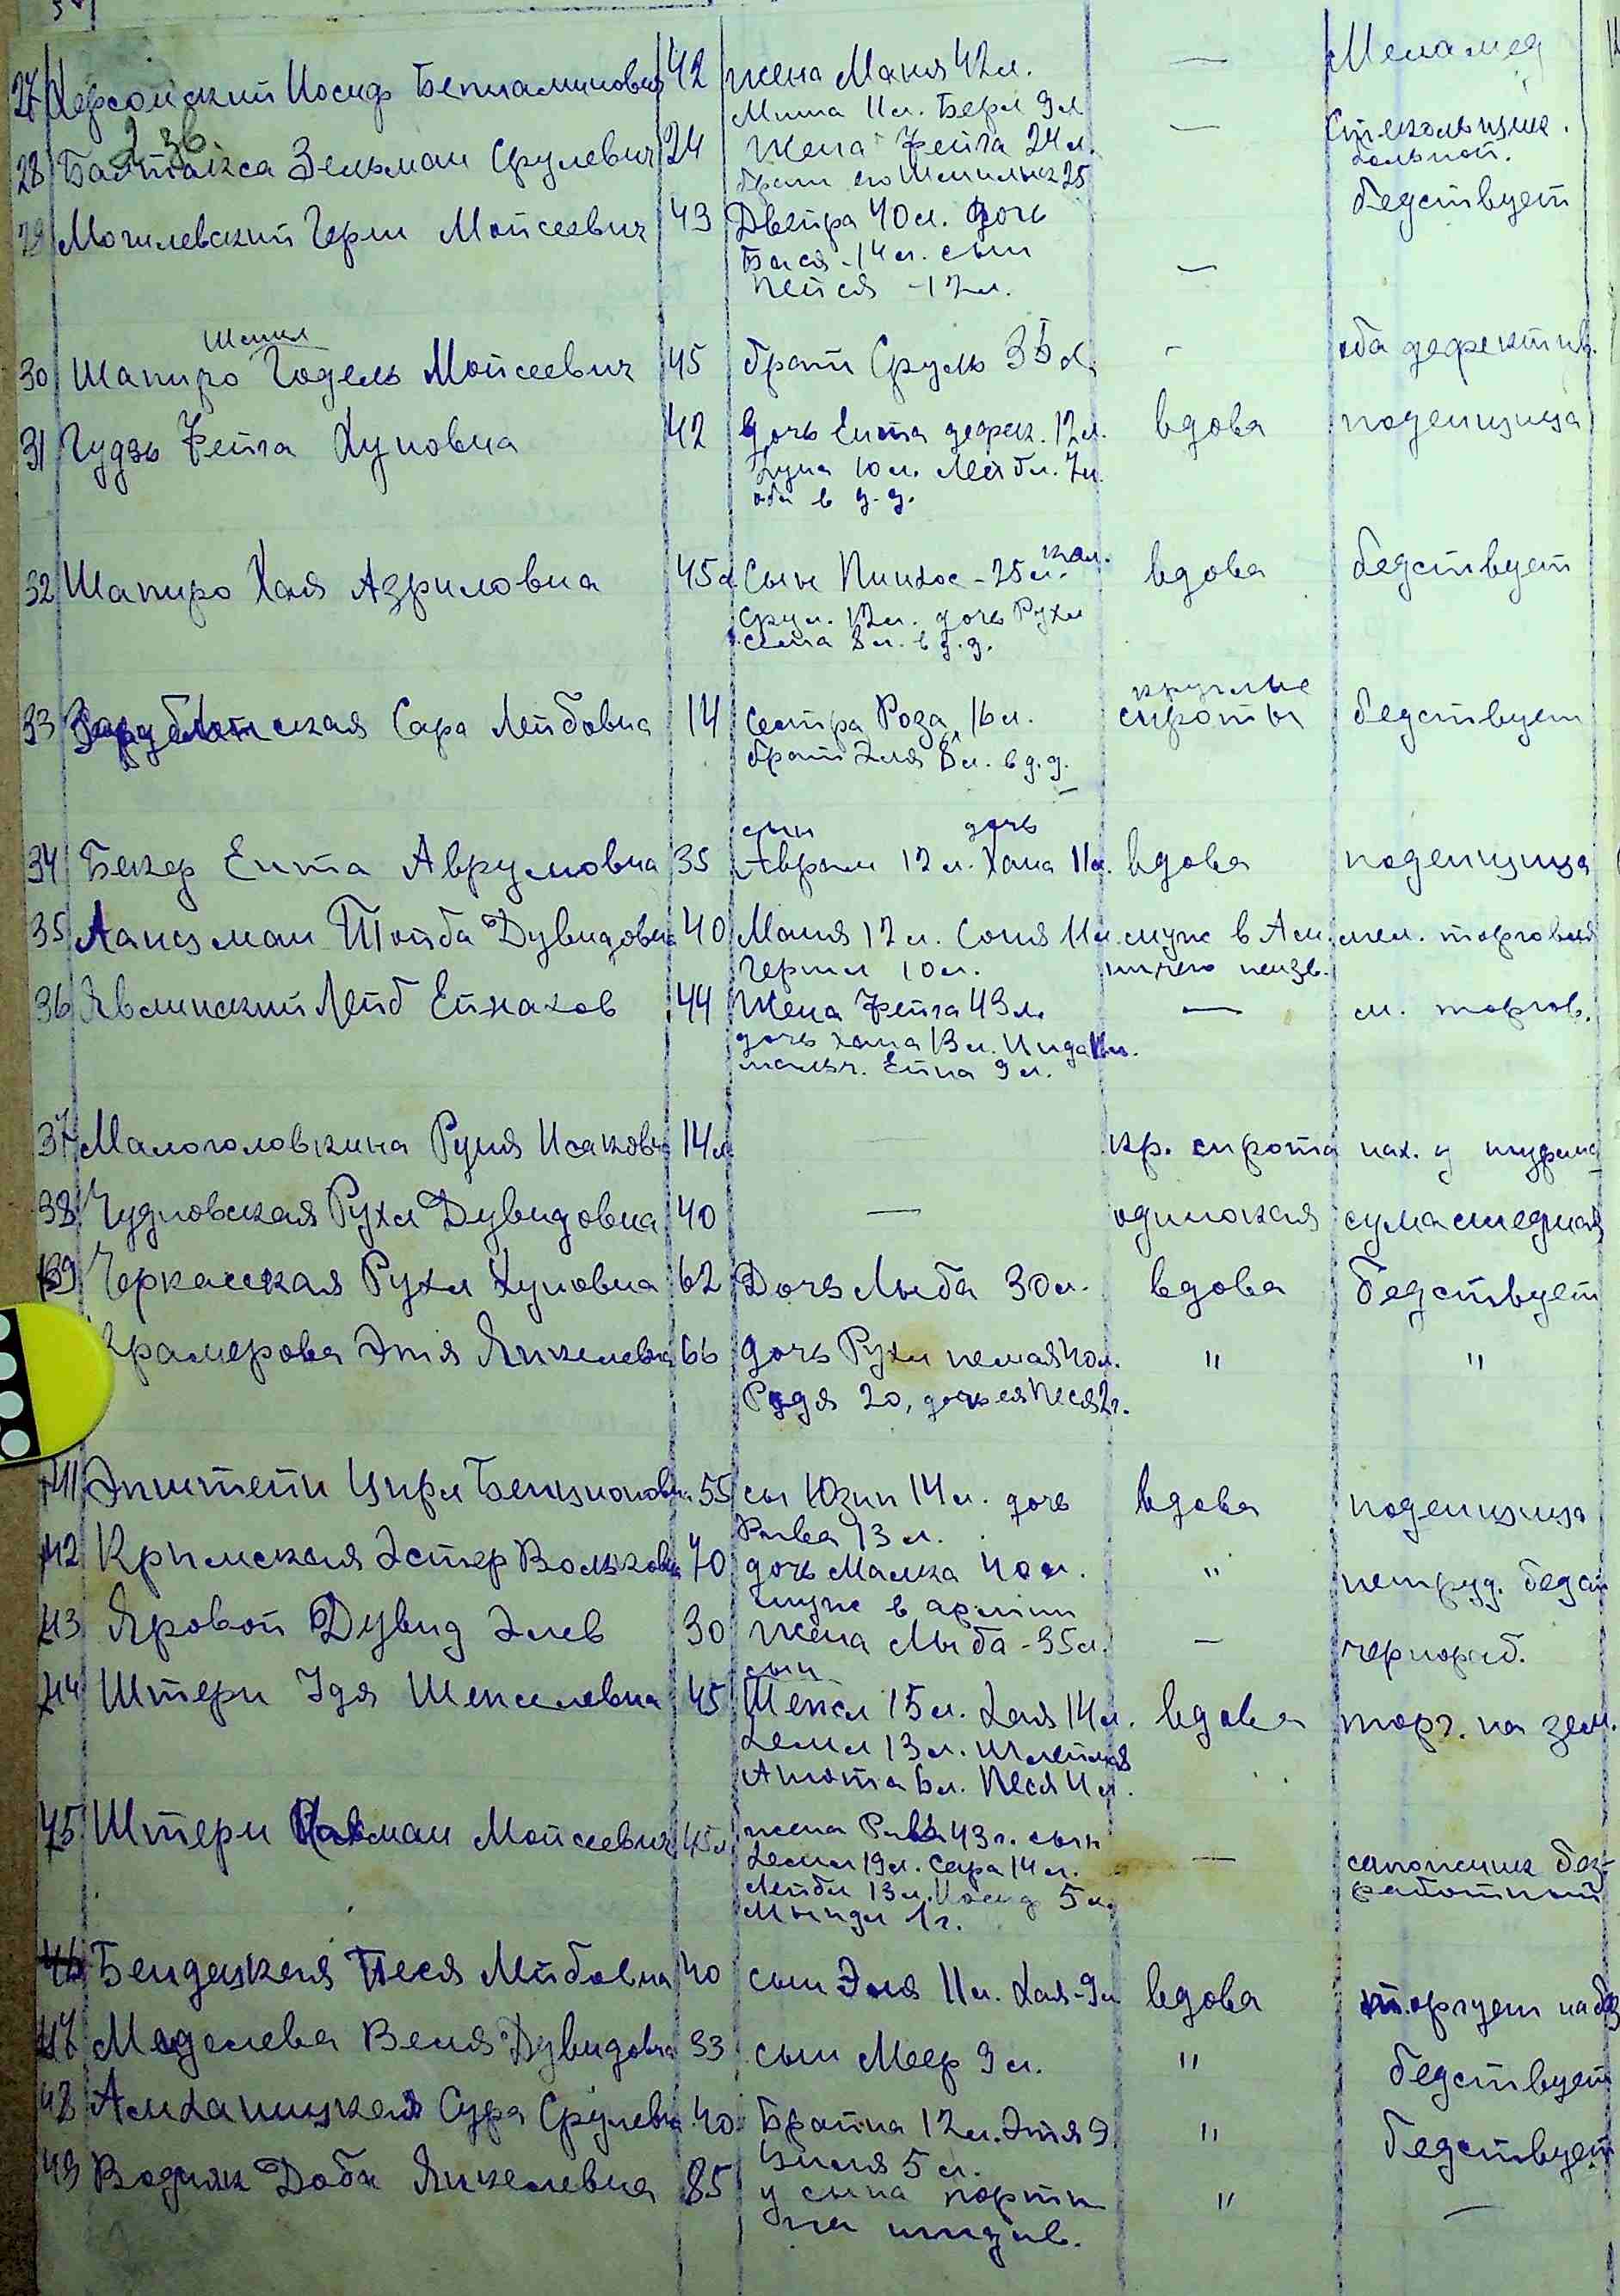 27 Херсонский Иосиф Бениаминович 42 жена Маня 42 л. — Меламед
Миша 11 л. Берл 9 л.
28 Зельман Срулевич 24 жена Фейга 24 л. — стекольщик.
брат его 25 больной.
29 Могилевский Герш Мойсеевич 43 Двейра 40 л. дочь бедствует
Бася - 14 л. сын —
Пейся - 12 л.
30 Шапиро Годель Мойсеевич 45 брат Сруль 35 л. — оба дефектив.
31 Гудзь Фейга Хуновна 42 дочь Ента дефек. 12 л. вдова поденщица
Хуна 10 л. Лейбл. 7 л.
оба в д.д.
32 Шапиро Хая Азриловна 45 л Сын Пинхос - 25 л. кал. вдова бедствует
Срул. 12 л. дочь Рухл
8 л. в д.д.
33 Сара Лейбовна 14 сестра Роза 16 л. круглые сироты бедствует
брат Эля 8 л. в д.д.
сын дочь
34 Бекер Ента Аврумовна 35 Аврам 12 л. Хана 11 л. вдова поденщица
35 Ланцман Тойба Дувидовна 40 Маня 12 л. Соня 11 л. муж в Ам. мел. торговля
Герш 10 л. ничего неизв.
36 Явлинский Лейб Ейнахов 44 Жена Фейга 43 л. — м. торгов.
дочь Хана 13 л. Инда
мальч. Ейна 9 л.
37 Малоголовкина Руня Исаковн 14 л — кр. сирота нах. у
38 Чудновская Рухл Дувидовна 40 — одинокая сумасшедшая
39 Черкасская Рухл Хуновна 62 Дочь Лыба 30 л. вдова бедствует
Крамерова Этя Янкелевна 66 дочь Рухл немая 40 л. " "
Рудя 20, дочь ея Песя 2 г.
41 Эпштейн Цирл Бенционовна 55 сы Юзип 14 л. дочь вдова поденщица
Рива 13 л.
42 Крымская Эстер Вольковна 70 дочь Малка 40 л. " нетруд. бедст
муж в армии
43 Яровой Дувид Элев 30 жена Лыба - 35 л. — чернораб.
сын
44 Штерн Идя Шенделевна 45 15 л. Хая 14 л. вдова торг. на зем.
13 л.
6 л. Песя 4 л.
45 Штерн Мойсеевич 45 л жена Рива 43 г. сын — сапожник без-
19 л. Сара 14 л. работный
Лейбл 13 л. Иосиф 5 л.
Мындл 1 г.
46 Бендецкая Песя Лейбовна 40 сын Эля 11 л. Хая - 9 л вдова торгует на
47 Веля Дувидовна 33 сын Меер 9 л. " бедствует
48 Сура Срулевна 40 Брайна 12 л. Этя 9 " бедствует
5 л.
49 Водняк Доба Янкелевна 85 у сына порт " —
на иждив.